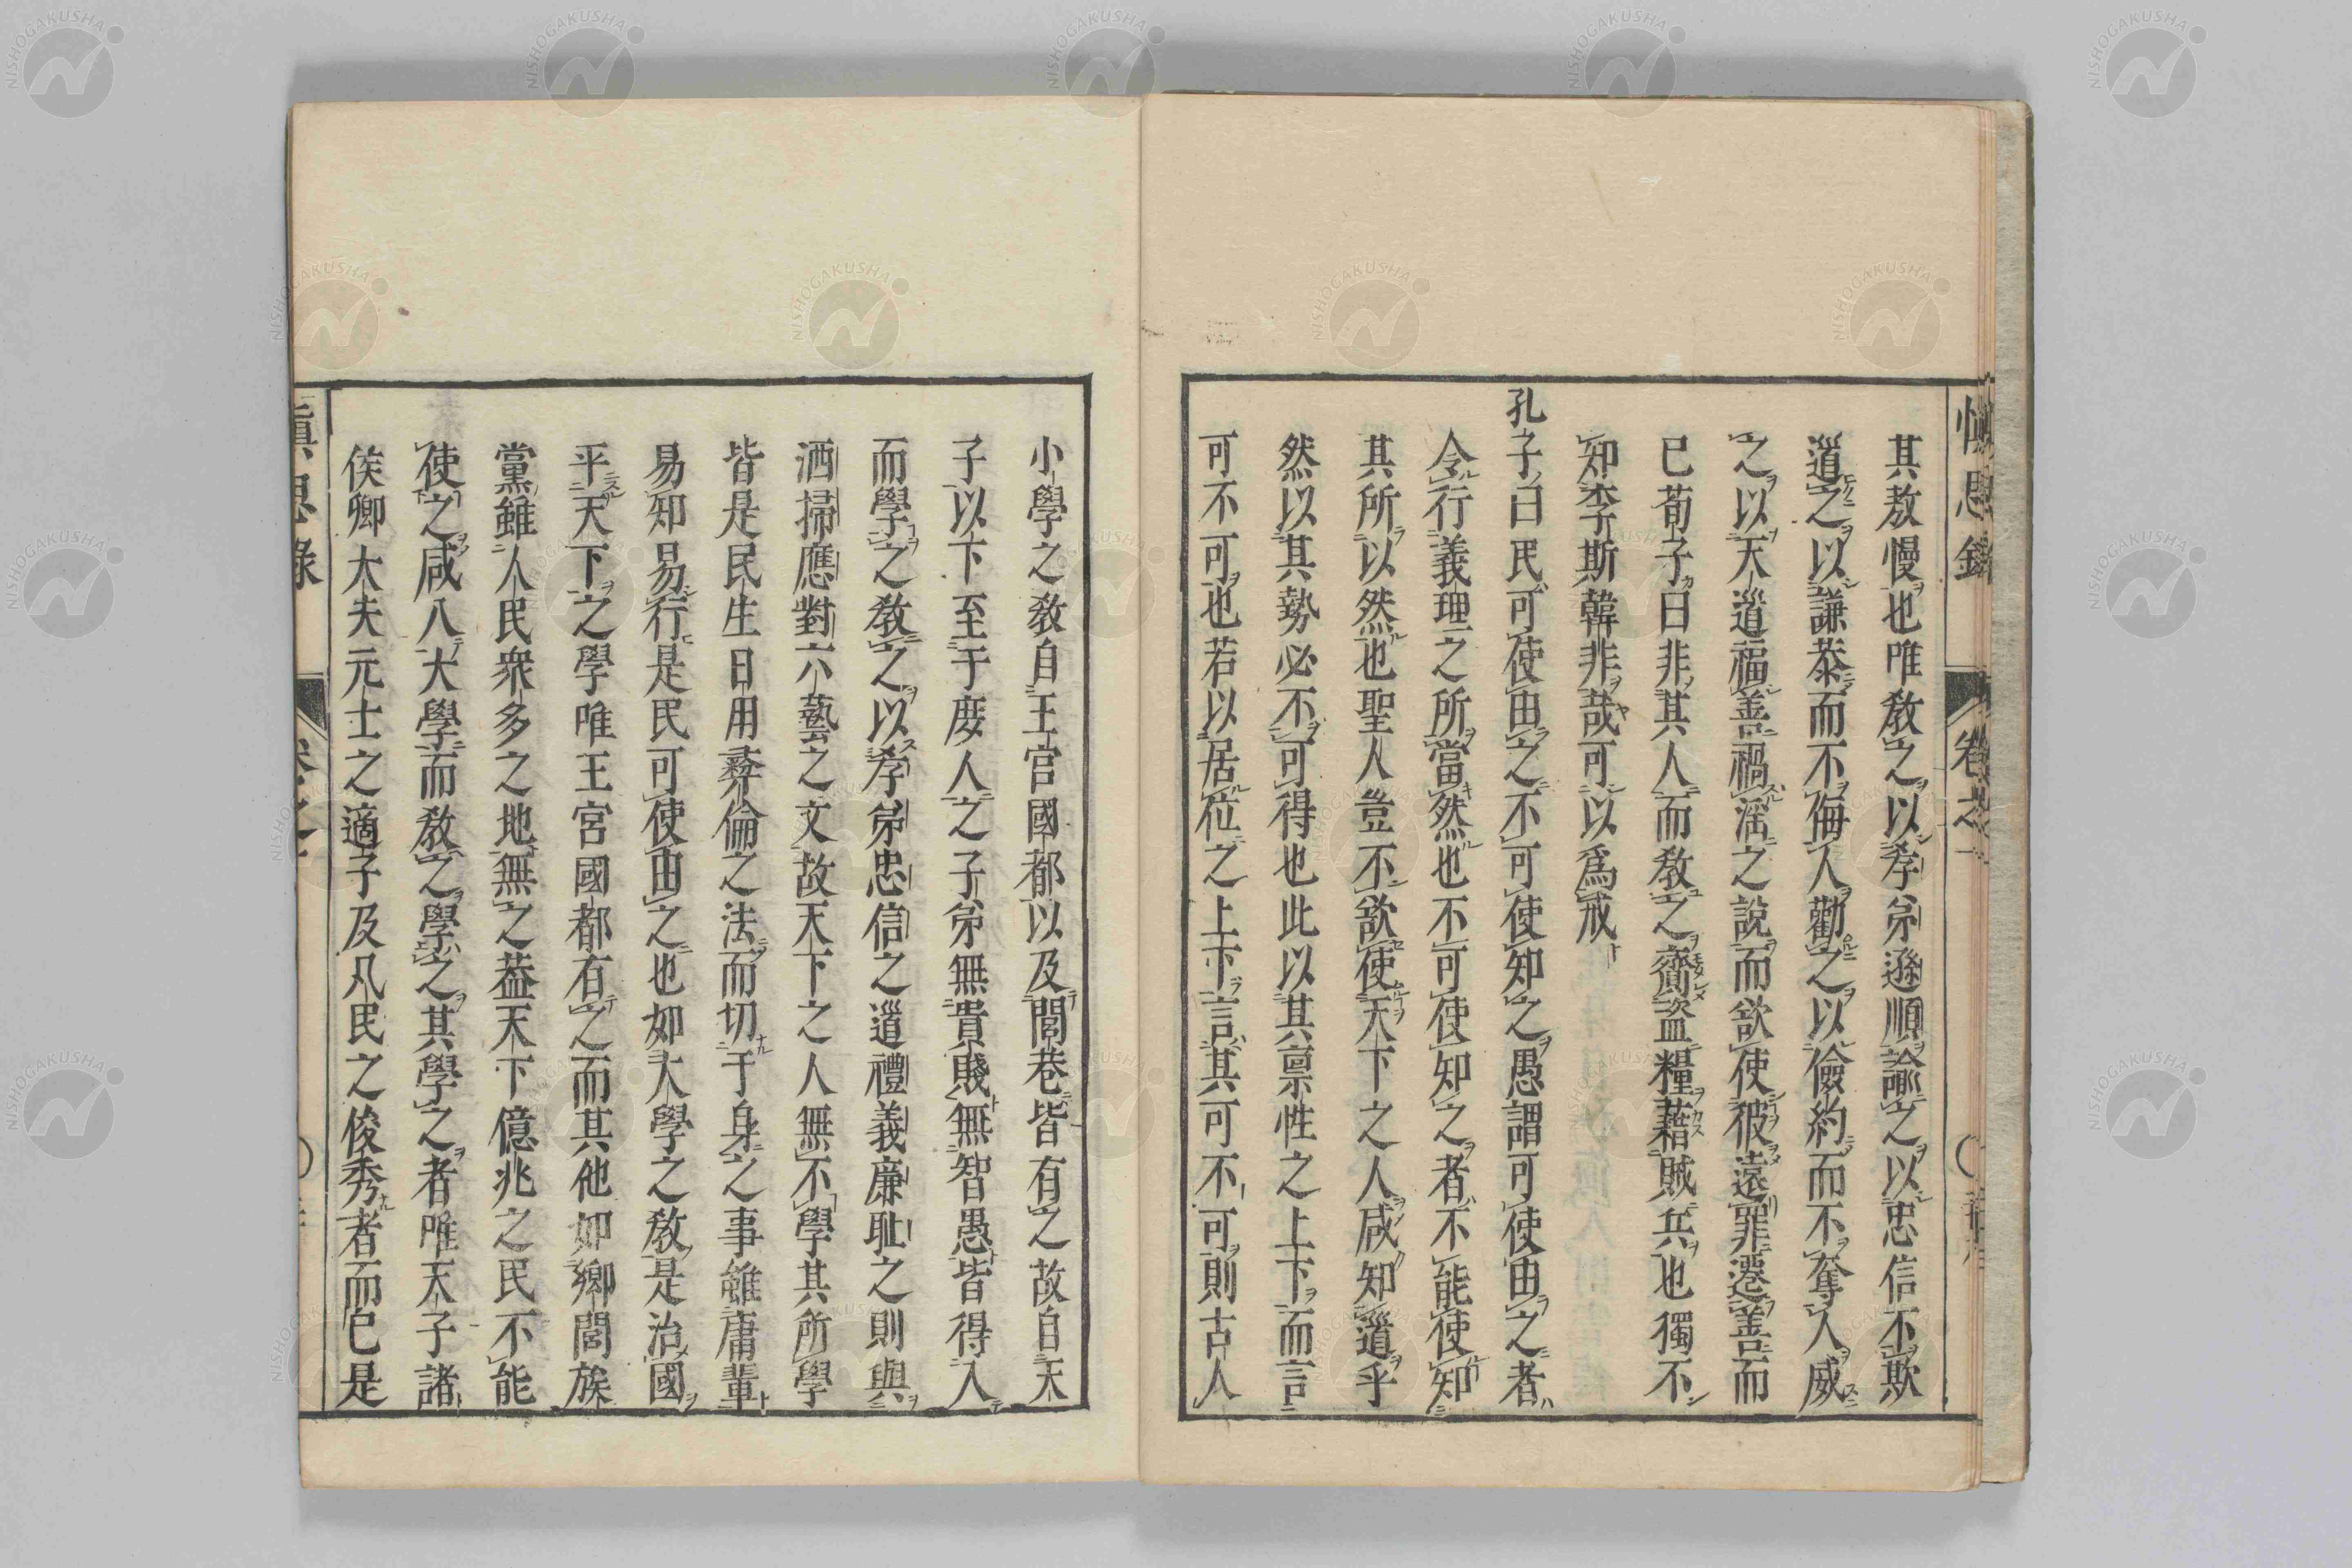 其敖慢也唯教之以孝弟遜順諭之以忠信不欺
道之以謙恭而不侮人勸之以儉約而不奪人威
之以天道福善禍淫之說而欲使彼遠罪遷善而
已荀子曰非其人而教之齎盜糧藉賊兵也獨不
知李斯韓非哉可以爲戒
孔子曰民可使由之不可使知之愚謂可使由之者
令行義理之所當然也不可使知之者不能使知
其所以然也聖人豈不欲使天下之人咸知道乎
然以其勢必不可得也此以其禀性之上下而言
可不可也若以居位之上下言其可不可則古人
小學之教自王宮國都以及閭巷皆有之故自天
子以下至于庶人之子弟無貴賤無智愚皆得入
而學之教之以孝弟忠信之道禮義廉耻之則與
洒掃應對六藝之文故天下之人無不學其所學
皆是民生日用彛倫之法而切于身之事雖庸輩
易知易行是民可使由之也如大學之教是治國
平天下之學唯王宮國都有之而其他如鄕閭族
黨雖人民衆多之地無之葢天下億兆之民不能
使之咸入大學而教之學之其學之者唯天子諸
侯卿大夫元士之適子及凡民之俊秀者而已是
愼思錄 卷之一
NISHOGAKUSHA